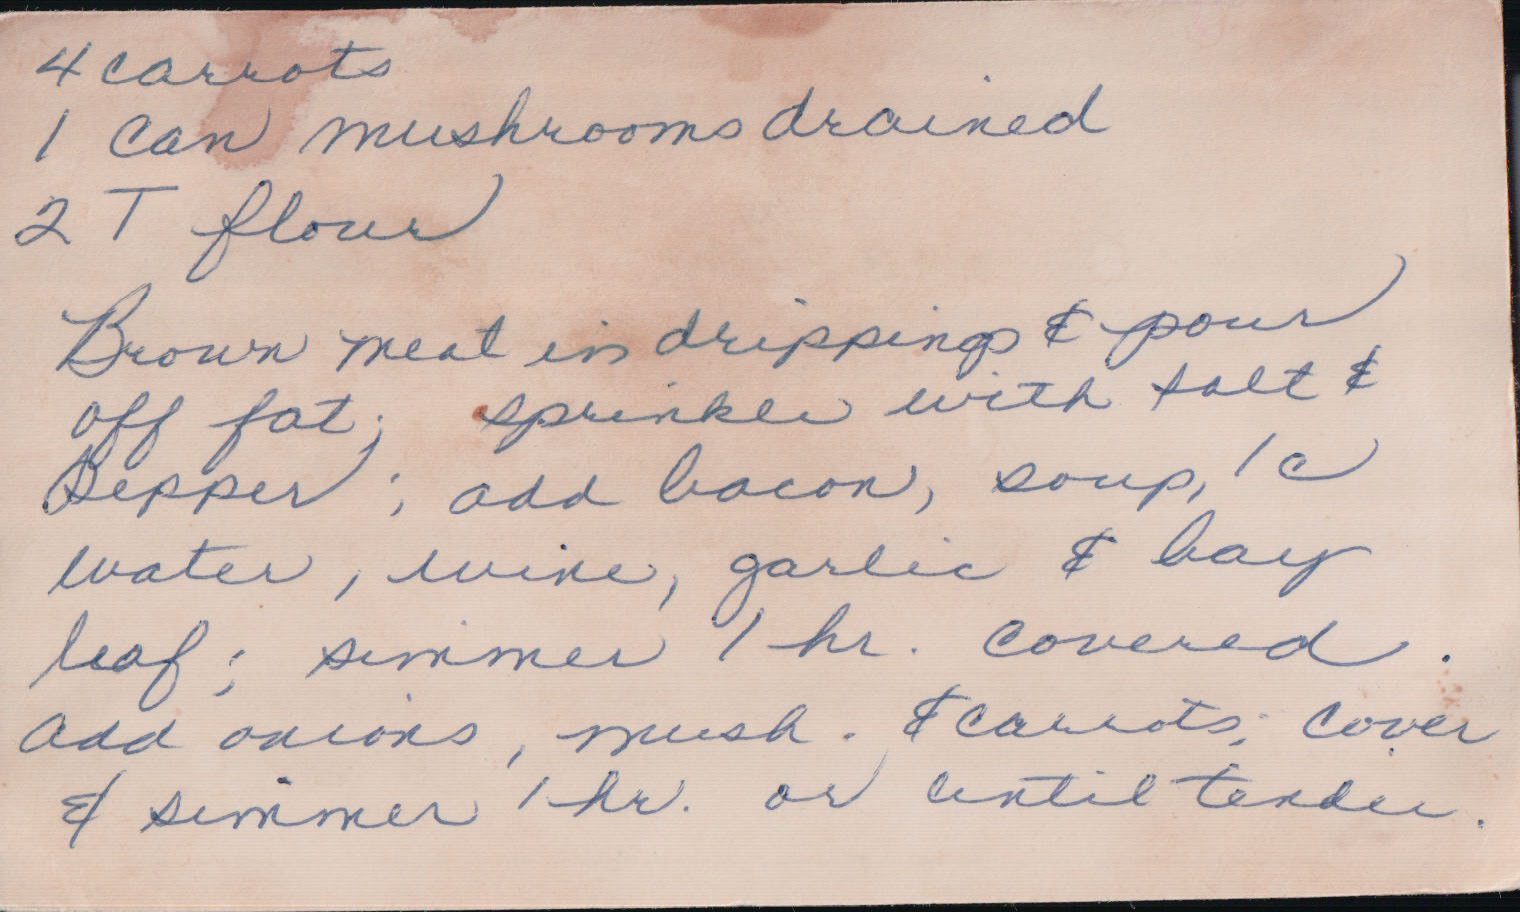 4 carrots
1 can mushrooms drained
2 T flour
Brown meat in drippings & pour
off fat; sprinkle with salt &
pepper; add bacon, soup, 1 c
water, wine, garlic & bay
leaf; simmer 1 hr. covered.
add onions, mush. & carrots; cover
& simmer 1 hr. or until tender.